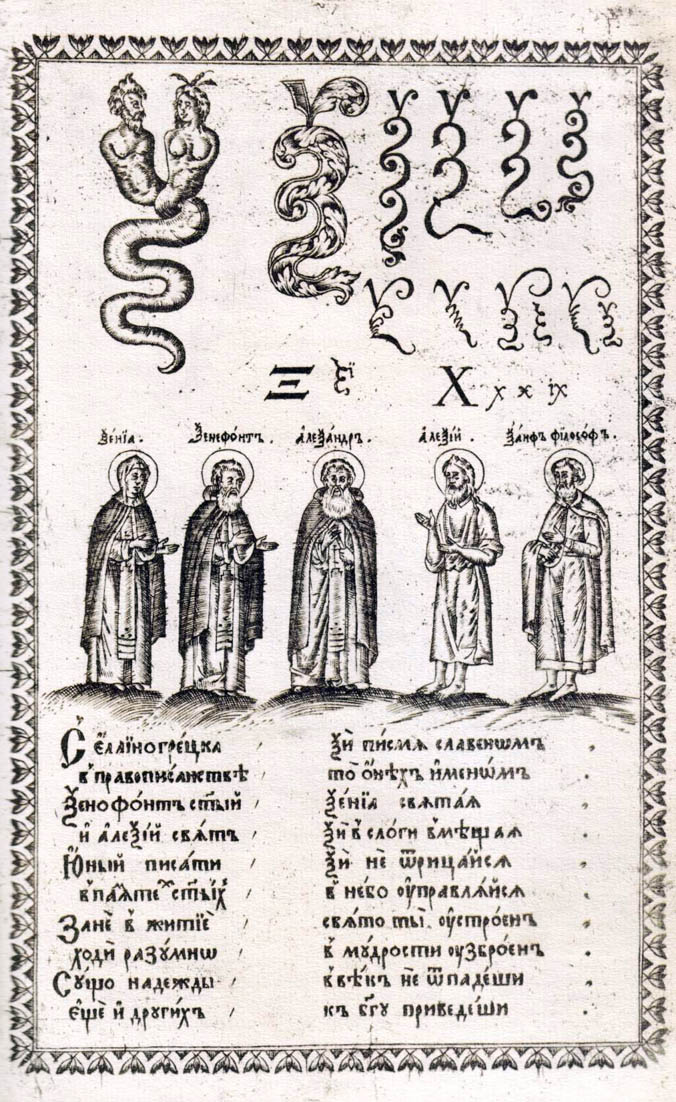 Ξ ѯї X x x ix
Ѯе́нїа. Ѯенефо́нтъ. Алеѯа́ндръ. Алеѯі́й. Ѯа́нѳъ філосо́фъ.
С̀ е҆ллїногре́цка ѯѝ пи́смѧ славенѡ́мъ
в̾ правописа́нствѣ то̀ ѻ҆́нѣхъ и҆менѡ́мъ
Ѯенофо́нтъ ст҃ый ѯе́нїа свѧта́ѧ
и҆ але́ѯїй свѧ́тъ ѯѝ в̾ сло́ги вмѣща́ѧ
Ю҆́ный писа́ти ѯѝ не ѿрица́йсѧ
в̾ па́мѧте ст҃ы́хъ в̾ не́бо ᲂу҆правлѧ́йсѧ
Занѐ в̾ житїѐ свѧ́то ты̀ ᲂу҆стро́енъ
ходѝ разꙋ́мнѡ в̾ мꙋ́дрости ᲂузбро́енъ
Сꙋ́щю наде́жды в̾вѣ́къ не ѿпаде́ши
є҆щѐ и҆ дрꙋги́хъ къ бг҃ꙋ приведе́ши